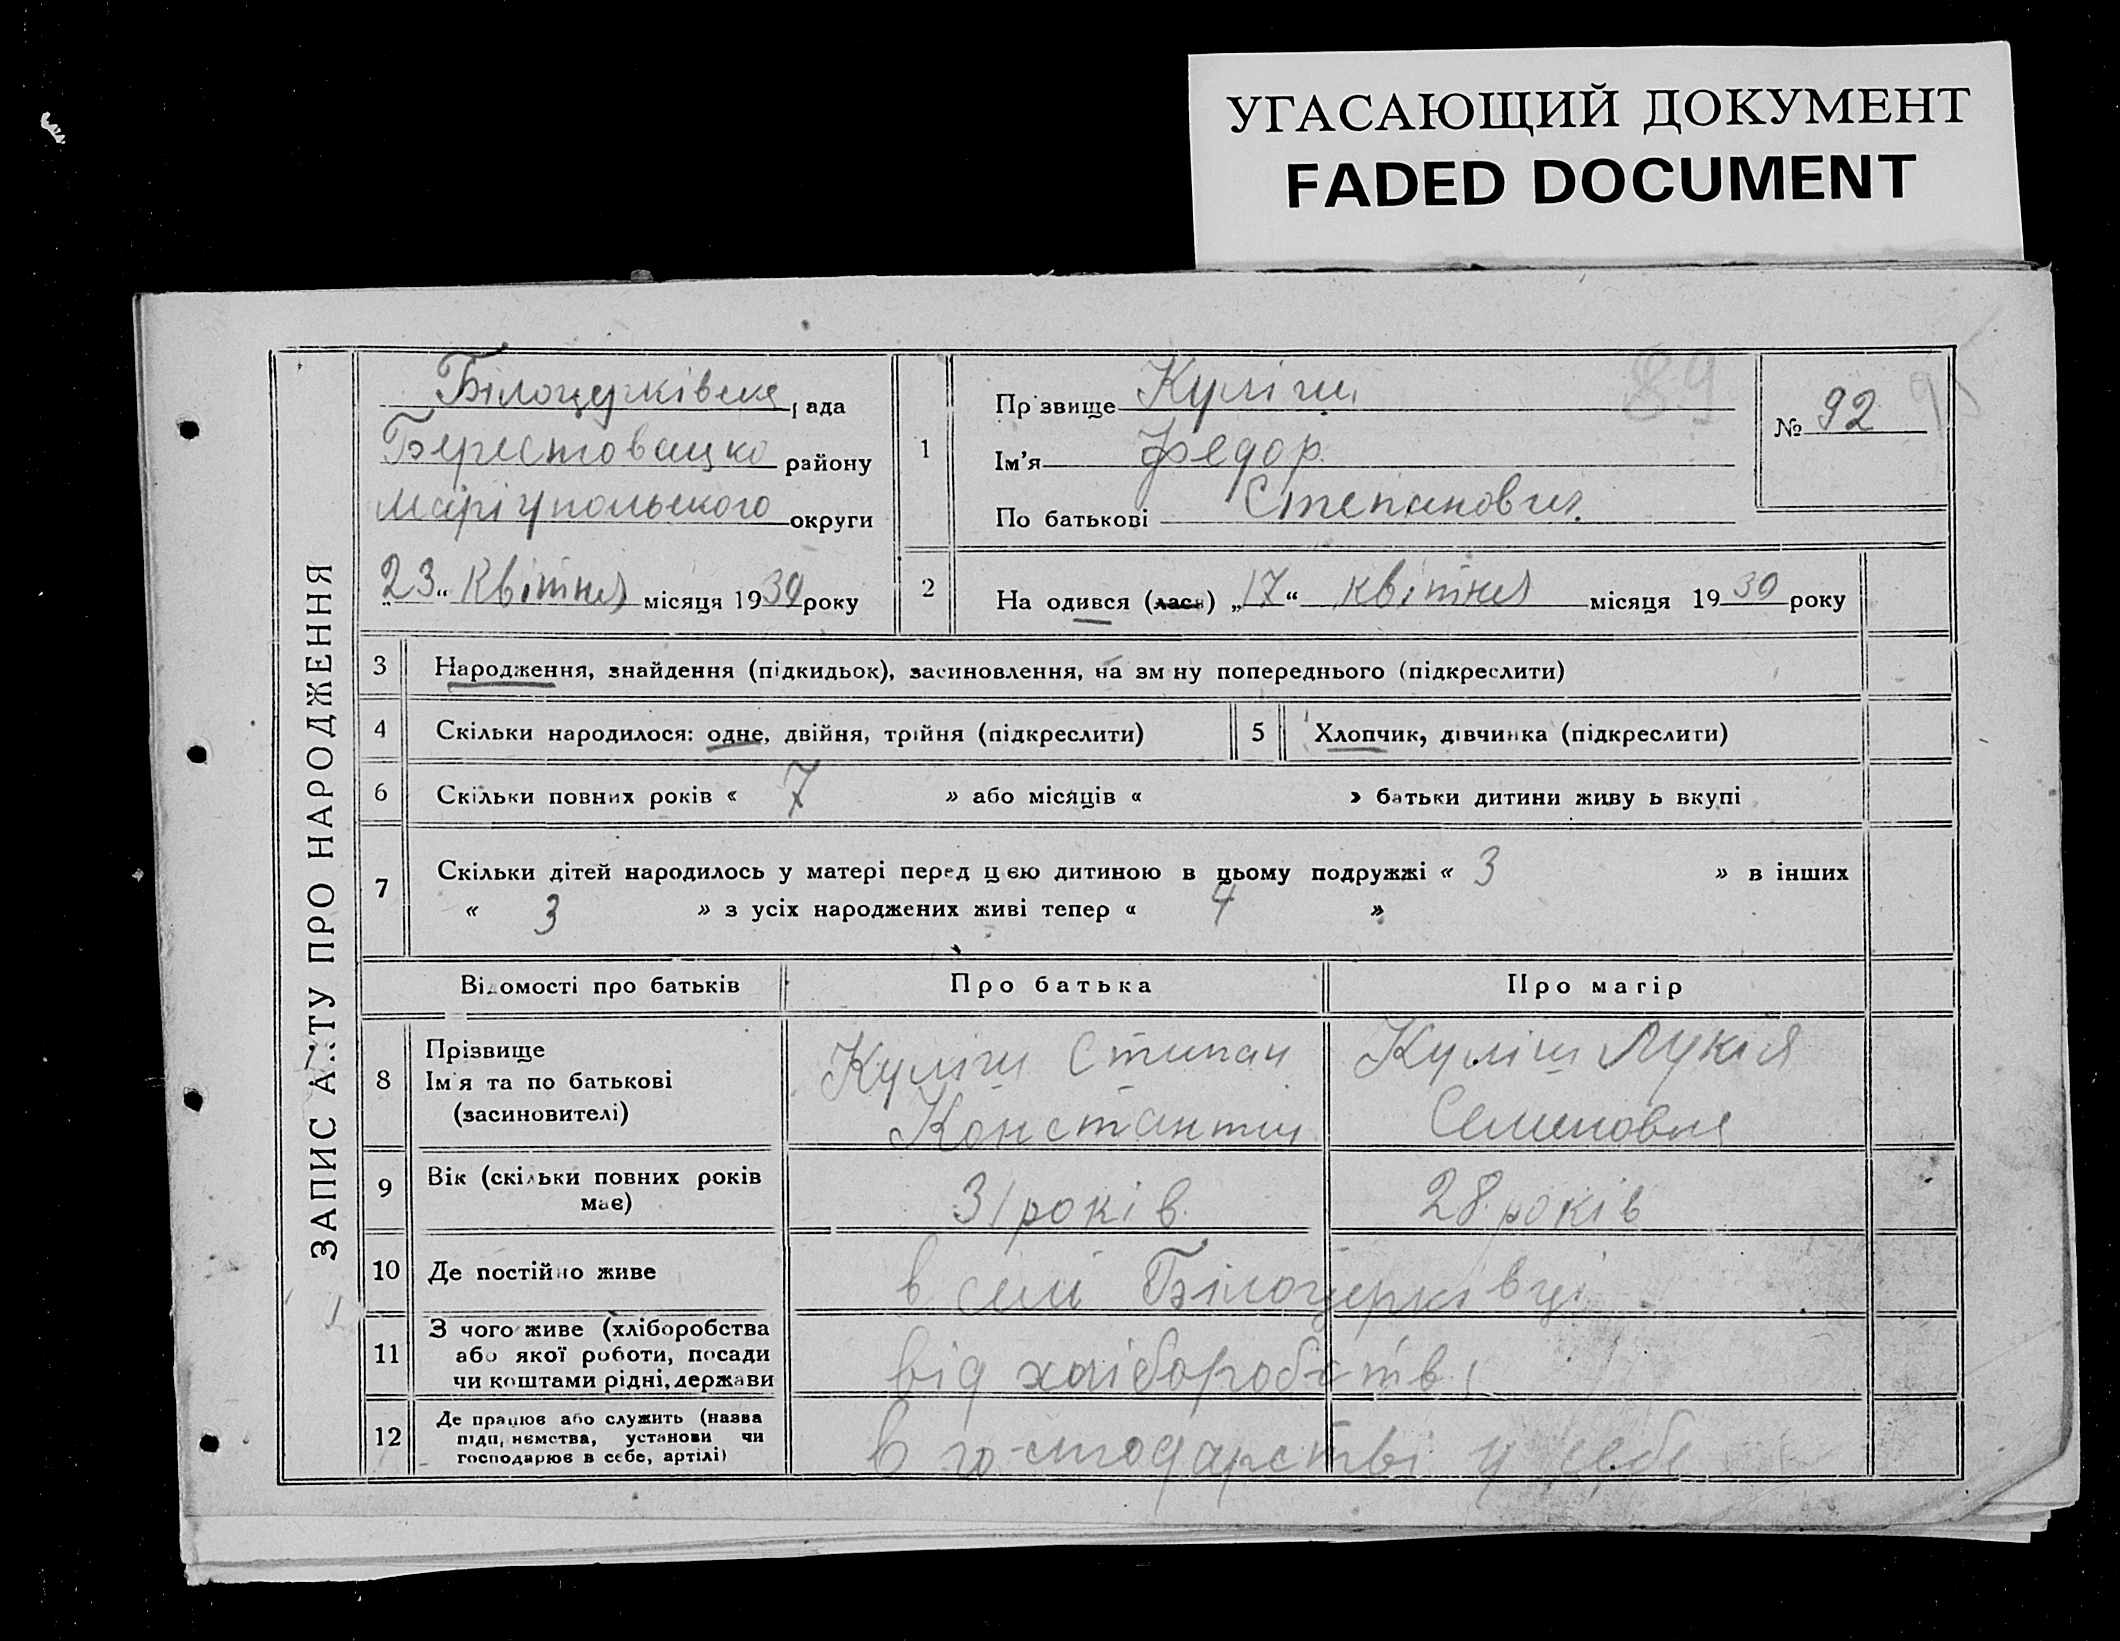 УГАСАЮЩИЙ ДОКУМЕНТ
FADED DOCUMENT
ЗАПИС АКТУ ПРО НАРОДЖЕННЯ
Білоцерківська рада
Берестовецко району
Маріупольского округи
„23“ Квітня місяця 1930 року
1
Прізвище Куліш
Ім'я Федор
По батькові Степанович
89
№ 92
2
На одився (лася) „17“ квітня місяця 1930 року
3 Народження, знайдення (підкидьок), засиновлення, на зміну попереднього (підкреслити)
4 Скільки народилося: одне, двійня, трійня (підкреслити)
5 Хлопчик, дівчинка (підкреслити)
6 Скільки повних років « 7 » або місяців « » батьки дитини живу ь вкупі
7 Скільки дітей народилось у матері перед цею дитиною в цьому подружжі « 3 » в інших
« 3 » з усіх народжених живі тепер « 4 »
Відомості про батьків
Про батька
Про матір
8 Прізвище
Ім'я та по батькові
(засиновителі)
Куліш Степан
Константин
Куліш Лукія
Семеновна
9 Вік (скільки повних років
має)
31 років
28 років
10 Де постійно живе
в селі Білоцерківці
11 З чого живе (хліборобства
або якої роботи, посади
чи коштами рідні, держави
від хліборобства
12 Де працює або служить (назва
підп, немства, установи чи
господарює в себе, артілі)
в господарстві у себе